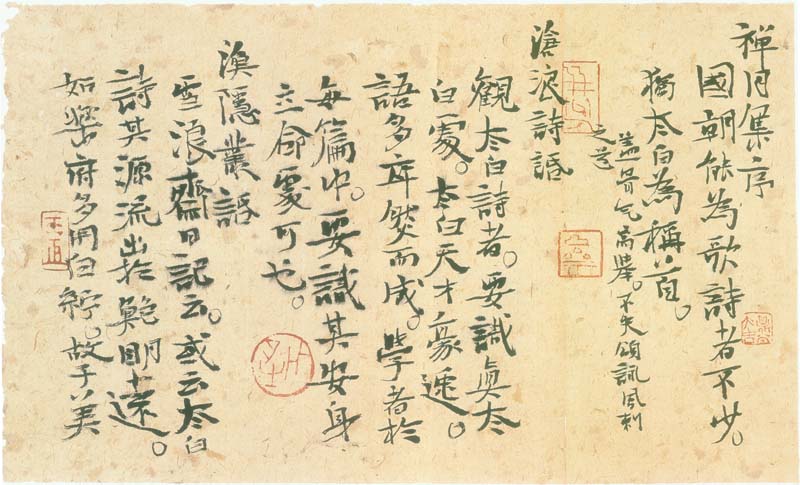 禅月集序
國朝能為歌詩者不少。
獨太白為稱首。
盖骨气高舉。不失頌詠風刺
之道
滄浪詩話
觀太白詩者。要識真太
白處。太白天才豪逸。
語多率然而成。學者於
每篇中。要識其安身
立命處可也。
漁隱叢話
雪浪齋日記云。或云太白
詩其源流出於鮑明遠。
如樂府多用白紵。故子美